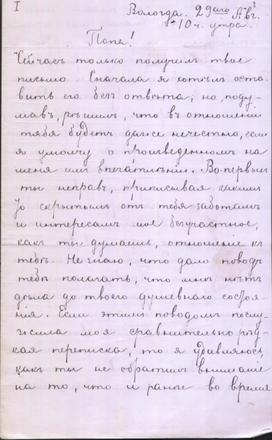 I
Вологда. 29ого Авг.
10 ч. утра.
Папа!
Сейчасъ только получилъ твое
письмо. Сначала я хотѣлъ оста
вить его безъ отвѣта, но, поду
мавъ, рѣшилъ, что въ отношении
тебя будетъ даже нечестно, если
я умолчу о произведенномъ на
меня имъ впечатлѣнии. Во-первыхъ
ты неправъ, приписывая какимъ
то скрытымъ отъ тебя заботамъ
и интересамъ мое безучастное,
какъ ты думаешь, отношение къ
тебѣ. Не знаю, что дало поводъ
тебѣ полагать, что мнѣ нѣтъ
дѣла до твоего душевного состоя
ния. Если этимъ поводомъ послу
жила моя сравнительно рѣд
кая переписка, то я удивляюсь,
какъ ты не обратилъ внимание
на то, что и ранѣе во время